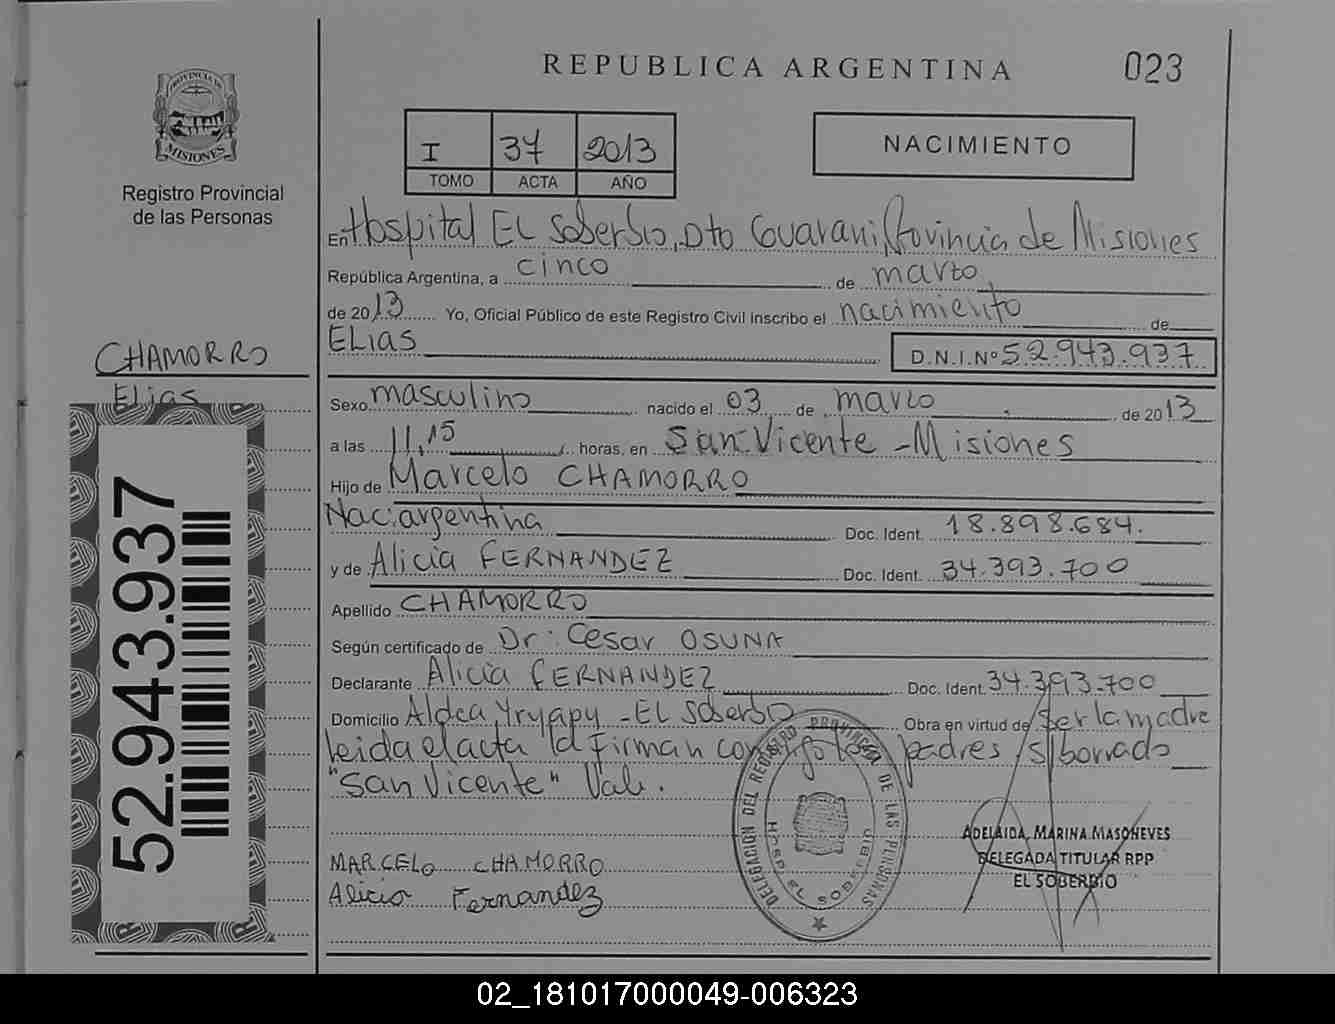 REPUBLICA ARGENTINA
023
PROVINCIA DE
MISIONES
Registro Provincial
de las Personas
I 37 2013
TOMO ACTA AÑO
NACIMIENTO
En Hospital EL Soberbio, Dto Guarani, Provincia de Misiones
República Argentina, a cinco de marzo
de 2013 Yo, Oficial Público de este Registro Civil inscribo el nacimiento de
ELias
D.N.I.Nº 52.943.937
CHAMORRO
Elias
Sexo masculino nacido el 03 de marzo de 2013
a las 11,15 horas, en San Vicente - Misiones
Hijo de Marcelo CHAMORRO
Nac: argentina Doc. Ident. 18.898.684.
y de Alicia FERNANDEZ Doc. Ident. 34.393.700
Apellido CHAMORRO
Según certificado de Dr: Cesar OSUNA
Declarante Alicia FERNANDEZ Doc. Ident. 34.393.700
Domicilio Aldea Yryapy - EL Soberbio Obra en virtud de ser la madre
leida el acta la firman conmigo los padres s/borrado
"San Vicente" Vale.
52.943.937
MARCELO CHAMORRO
Alicia Fernandez
DELEGACION DEL REGISTRO PROVINCIAL DE LAS PERSONAS
HOSP. EL SOBERBIO
ADELAIDA MARINA MASONEVES
DELEGADA TITULAR RPP
EL SOBERBIO
02_181017000049-006323